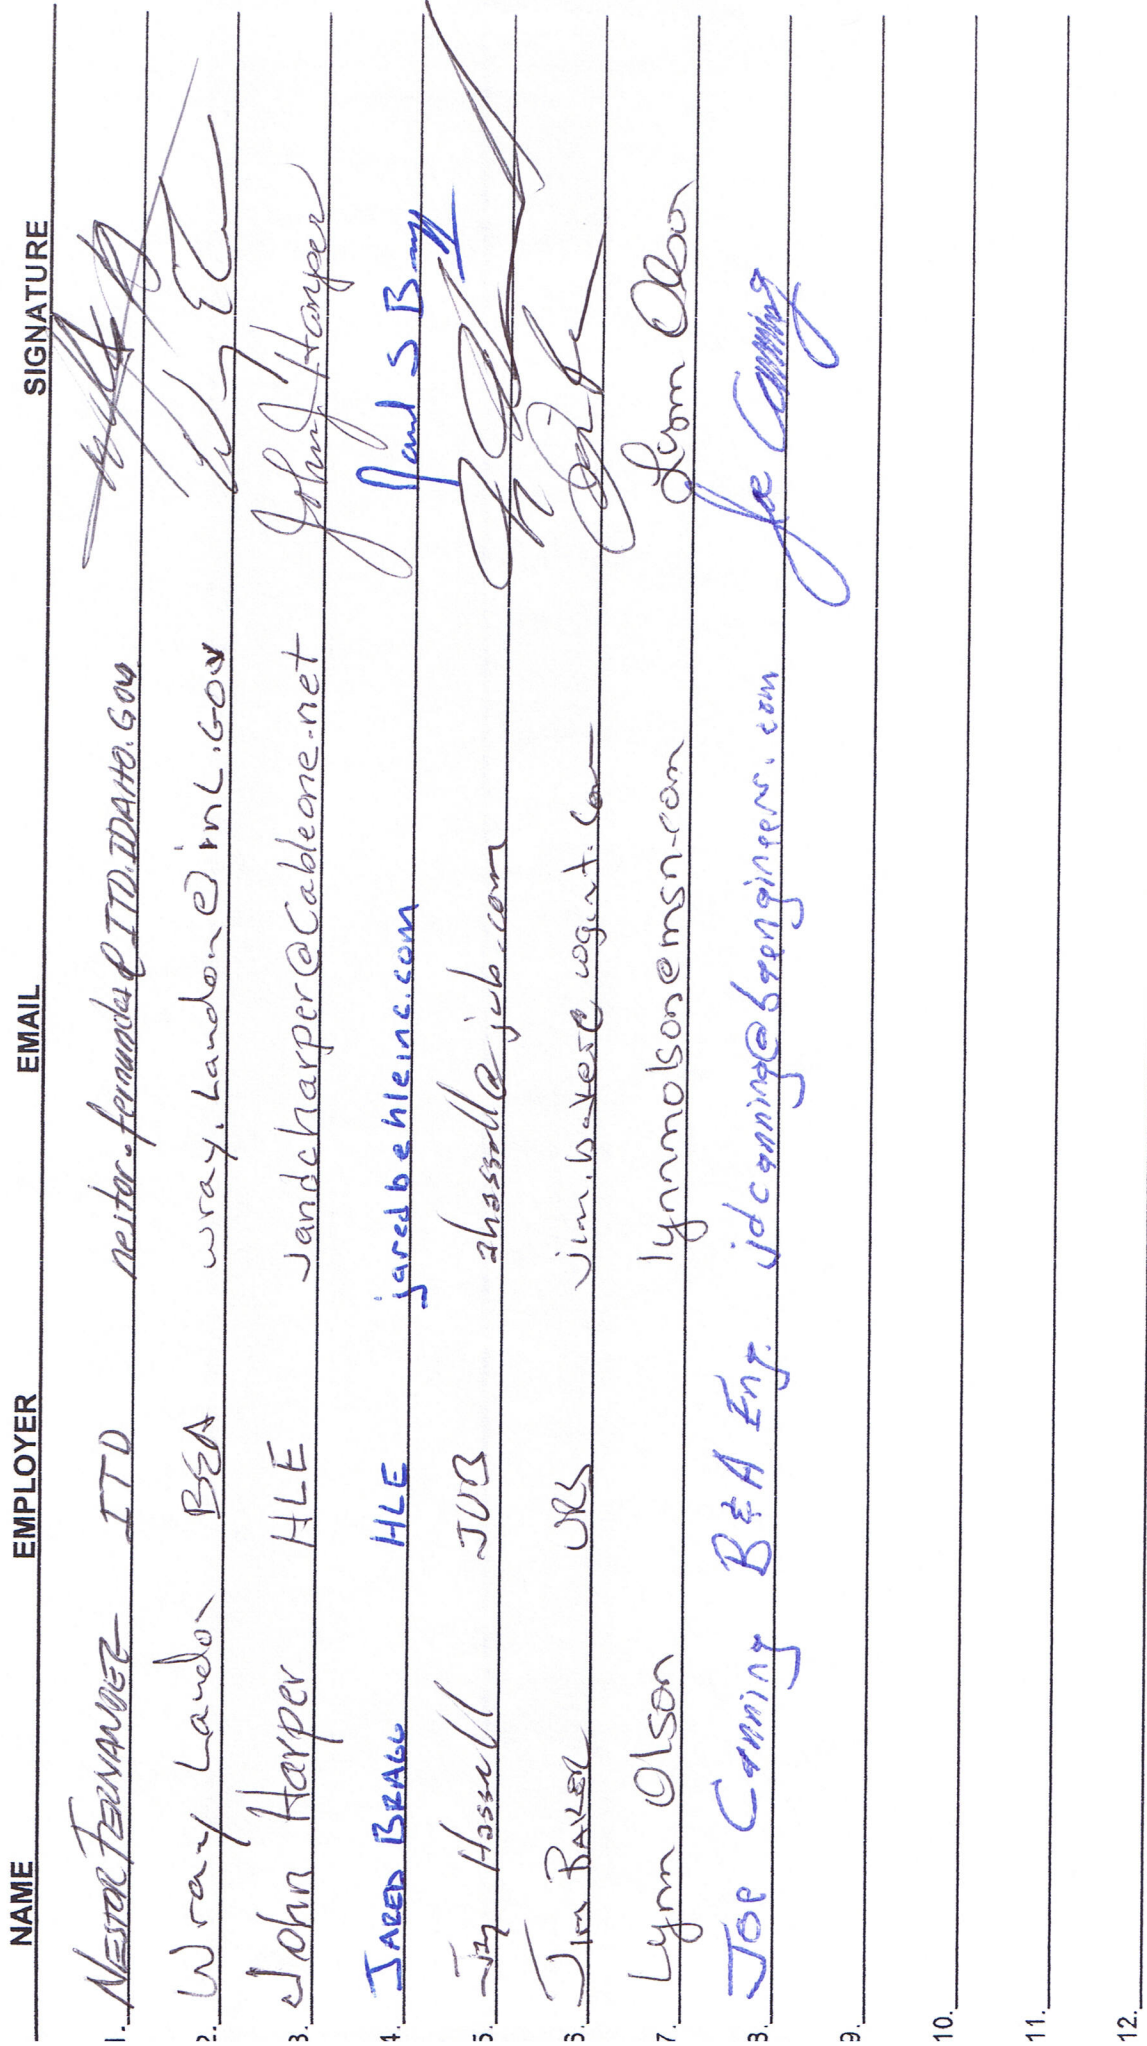 NAME EMPLOYER EMAIL SIGNATURE
1. NESTOR FERNANDEZ ITD nestor.fernandez@ITD.IDAHO.GOV
2. Wray Landon BEA wray.Landon@inL.GOV
3. John Harper HLE jandcharper@Cableone.net John J. Harper
4. JARED BRAGG HLE jaredb@hleinc.com
5. Jay Hassell JUB jhassell@jub.com
6. Jim BAKER URS jim.baker@wgint.com
7. Lynn Olson lynnmolson@msn.com Lynn Olson
8. Joe Canning B & A Eng. jdcanning@baengineers.com Joe Canning
9.
10.
11.
12.